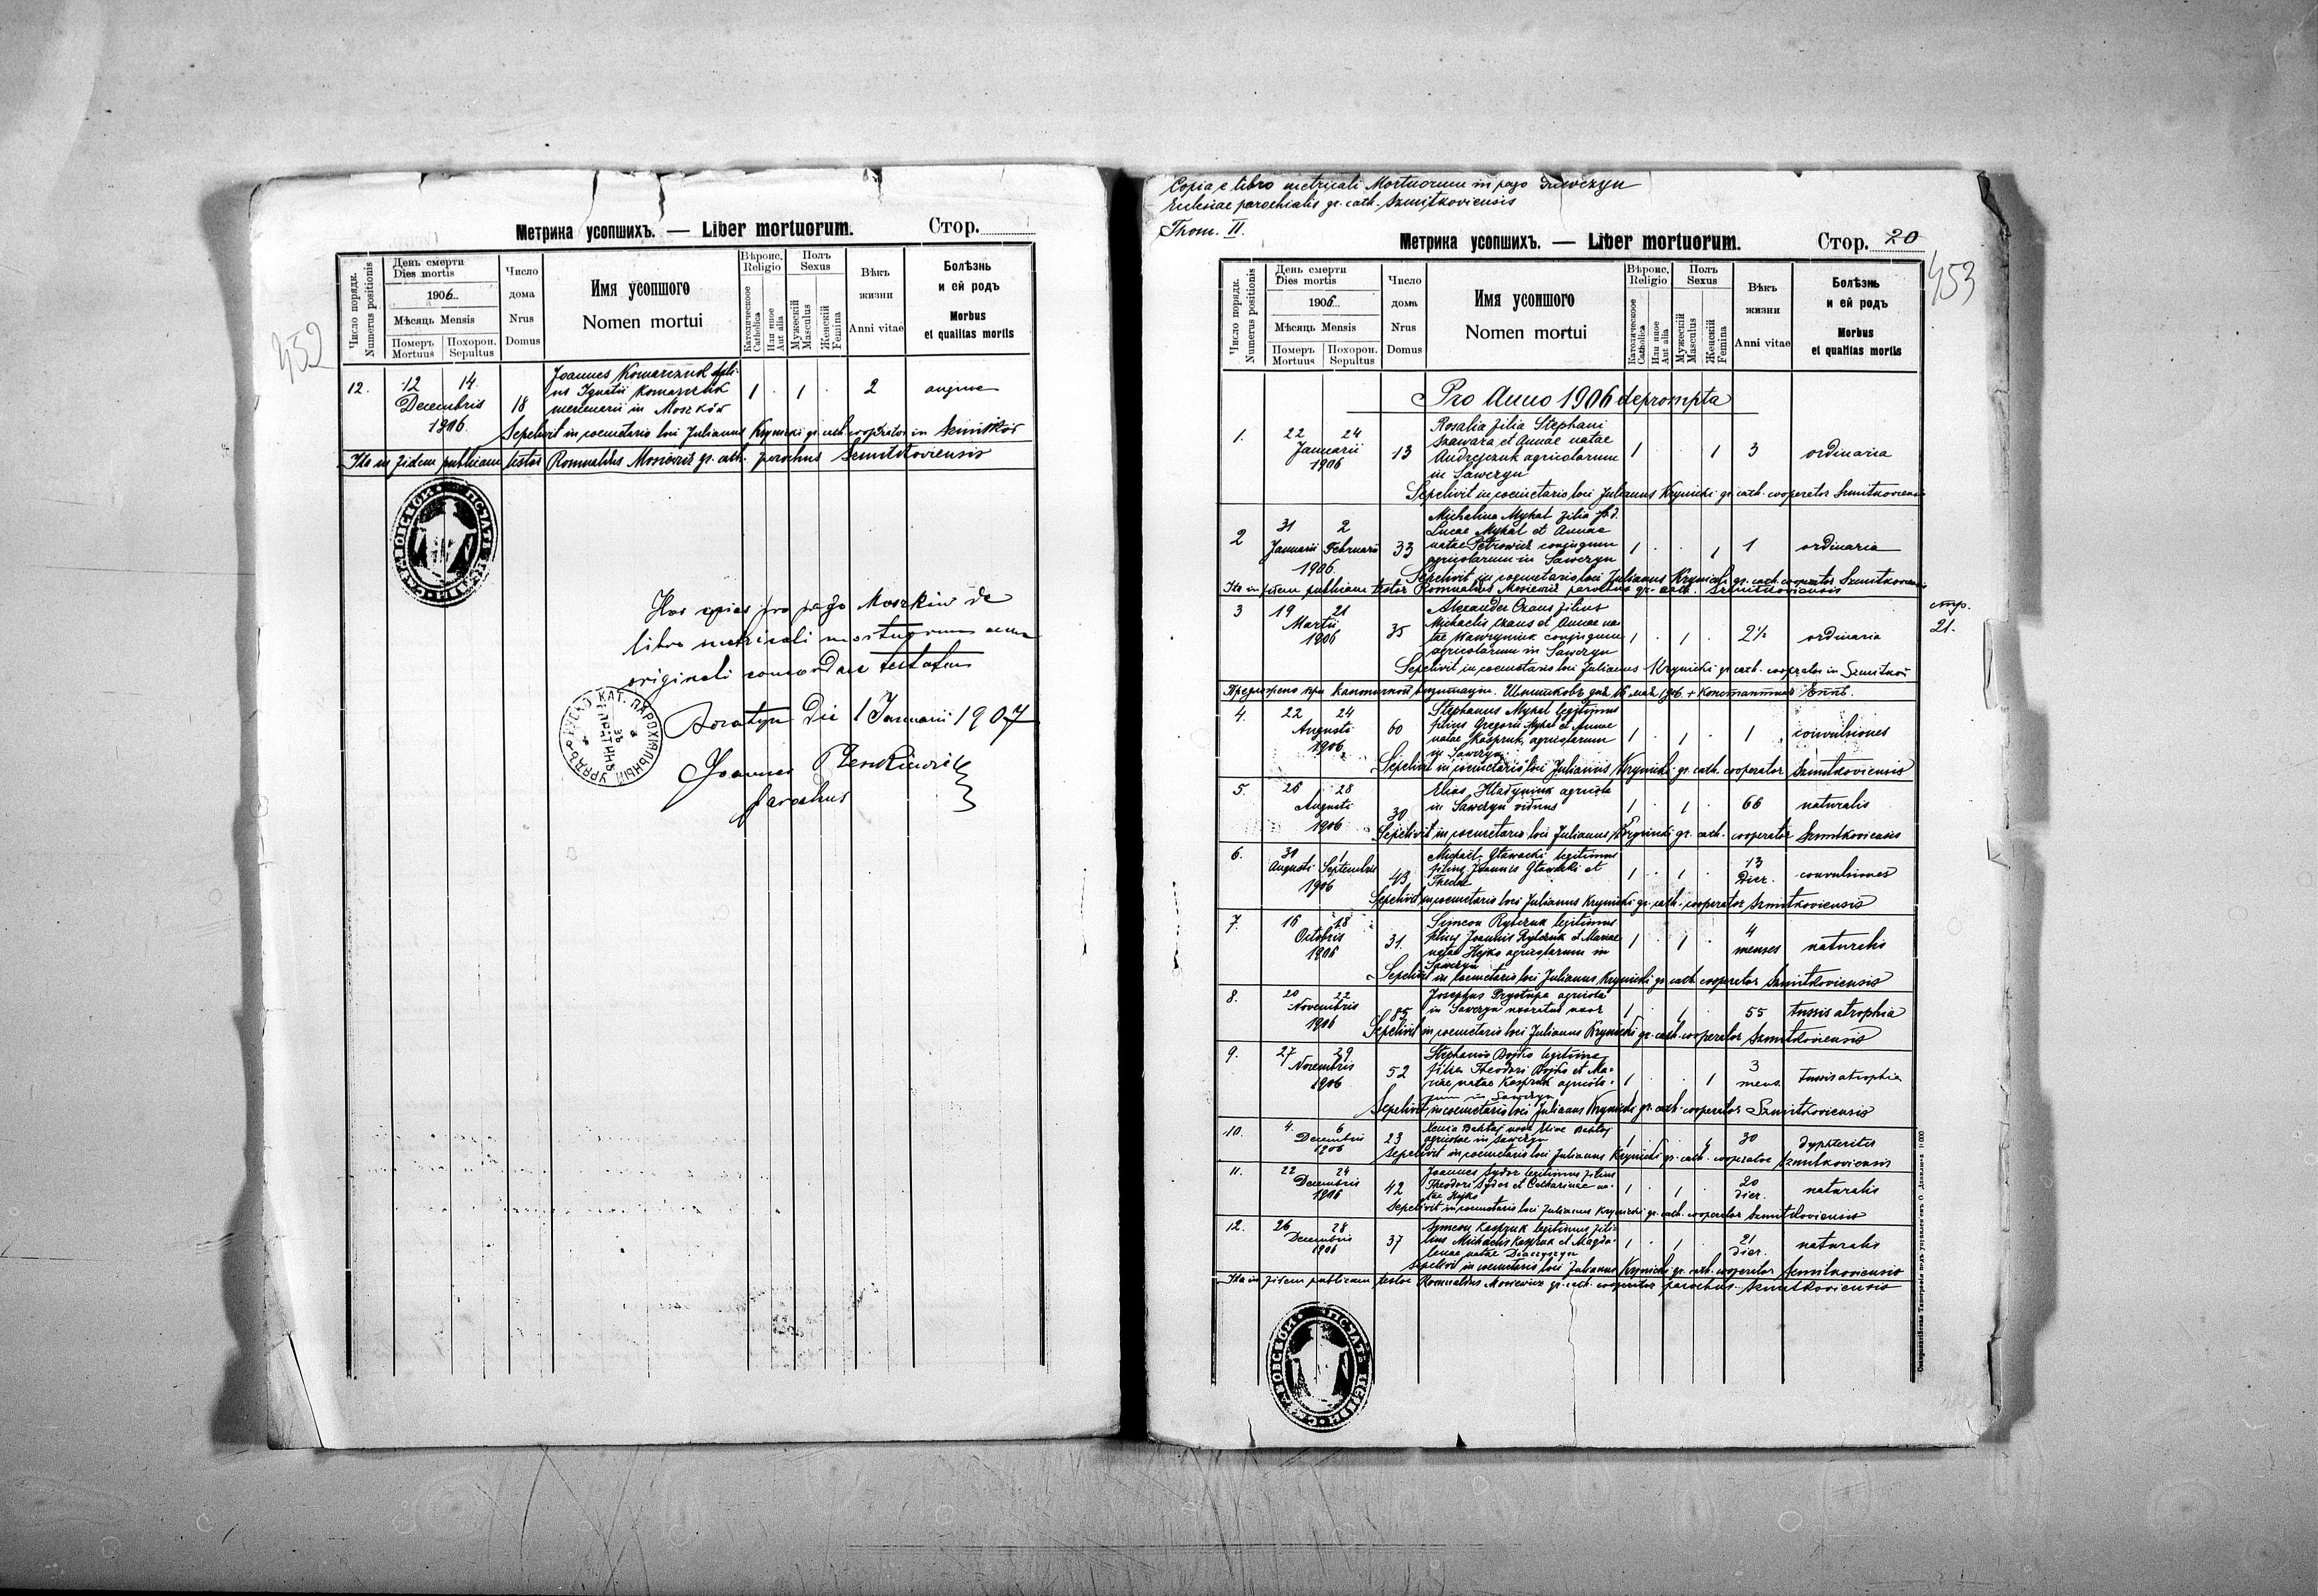 Метрика усопшихъ. — Liber mortuorum. Стор.
Число порядк. Numerus positionis
День смерти
Dies mortis
1906.
Мѣсяць Mensis
Померъ Mortuus
Похорон. Sepultus
Число дома
Nrus Domus
Имя усопшого
Nomen mortui
Вѣроис. Religio
Католическое Catholica
Или иное Aut alia
Полъ Sexus
Мужескій Masculus
Женскій Femina
Вѣкъ жизни
Anni vitae
Болѣзнь и ей родъ
Morbus et qualitas mortis
452
12. 12 14. Decembris 1906. 18
Joannes Komarczuk fili-
us Ignatii Komarczuk
mercenarii in Moszków
1 . 1 . 2 angina
Sepelivit in coemetario loci Julianus Krynicki gr. cath. cooperator in Szmitków
Ita in fidem publicam testor Romualdus Mosiewicz gr. cath. parochus Szmitkoviensis
Has copias pro pago Moszków de
libro metricali mortuorum cum
originali concordare testatur
die 1 Januarii 1907
Joannes
parochus
Copia e libro metricali Mortuorum in pago Sawczyn
Eclesiae parochialis gr. cath. Szmitkoviensis
Thom. II.
Метрика усопшихъ. — Liber mortuorum. Стор. 20
453
Число порядк. Numerus positionis
День смерти
Dies mortis
1906.
Мѣсяць Mensis
Померъ Mortuus
Похорон. Sepultus
Число дома
Nrus Domus
Имя усопшого
Nomen mortui
Вѣроис. Religio
Католическое Catholica
Или иное Aut alia
Полъ Sexus
Мужескій Masculus
Женскій Femina
Вѣкъ жизни
Anni vitae
Болѣзнь и ей родъ
Morbus et qualitas mortis
Pro Anno 1906 deprompta
1. 22 24 Januarii 1906 13
Rosalia filia Stephani
Szawara et Annae natae
Andrejczuk agricolarum
in Sawczyn
1 . . 1 3 ordinaria
Sepelivit in coemetario loci Julianus Krynicki gr. cath. cooperator Szmitkoviensis
2 31 Januarii 2 Februarii 1906. 33
Michalina Mykat filia
Lucae Mykat et Annae
natae Petrowicz conjugum
agricolarum in Sawczyn
1 . . 1 1 ordinaria
Sepelivit in coemetario loci Julianus Krynicki gr. cath. cooperator Szmitkoviensis
Ita in fidem publicam testor Romualdus Mosiewicz parochus gr. cath. Szmitkoviensis
3 19 21 Martii 1906 35
Alexander Czaus filius
Michaelis Czaus et Annae na-
tae Wawryniuk conjugum
agricolarum in Sawczyn
1 . 1 . 2½ ordinaria
стр.
21.
Sepelivit in coemetario loci Julianus Krynicki gr. cath. cooperator in Szmitków
Предложено при каноничной визитации. Шмитковъ дня 16 мая 1906. + Константинъ Епп.
4. 22 24 Augusti 1906 60
Stephanus Mykat legitimus
filius Gregorii Mykat et Annae
natae Kaspruk, agricolarum
in Sawczyn
1 . 1 . 1 convulsiones
Sepelivit in coemetario loci Julianus Krynicki gr. cath. cooperator Szmitkoviensis
5. 26 28 Augusti 1906 30
Elias Hladyniuk agricola
in Sawczyn viduus
1 . 1 . 66 naturalis
Sepelivit in coemetario loci Julianus Krynicki gr. cath. cooperator Szmitkoviensis
6. 30 Augusti 1 Septembris 1906 43
Michael Gławacki legitimus
filius Joannis Gławacki et
Theclae
1 . 1 . 13 dier. convulsiones
Sepelivit in coemetario loci Julianus Krynicki gr. cath. cooperator Szmitkoviensis
7. 16 18 Octobris 1906 31.
Simeon Rybczuk legitimus
filius Joannis Rybczuk et Mariae
natae Hejko agricolarum in
Sawczyn
1 . 1 . 4 menses naturalis
Sepelivit in coemetario loci Julianus Krynicki gr. cath. cooperator Szmitkoviensis
8. 20 22 Novembris 1906 85
Josephus Prystupa agricola
in Sawczyn uxoratus
1 . 1 . 55 tussis atrophia
Sepelivit in coemetario loci Julianus Krynicki gr. cath. cooperator Szmitkoviensis
9. 27 29 Novembris 1906 52
Stephania Bojko legitima
filia Theodori Bojko et Ma-
riae natae Kaspruk agricola-
rum in Sawczyn
1 . . 1 3 mens. tussis atrophia
Sepelivit in coemetario loci Julianus Krynicki gr. cath. cooperator Szmitkoviensis
10. 4. 6 Decembris 1906 23
Xenia Bahtaj uxor Eliae Bahtaj
agricolae in Sawczyn
1 . . 1 30 dyphteritis
Sepelivit in coemetario loci Julianus Krynicki gr. cath. cooperator Szmitkoviensis
11. 22 24 Decembris 1906 42
Joannes Sydor legitimus filius
Theodori Sydor et Catharinae na-
tae Hejko
1 . 1 . 20 dier. naturalis
Sepelivit in coemetario loci Julianus Krynicki gr. cath. cooperator Szmitkoviensis
12. 26 28 Decembris 1906 37
Symeon Kaspruk legitimus fili-
us Michaelis Kaspruk et Magda-
lenae natae Diaczyszyn
1 . 1 . 21 dier. naturalis
Sepelivit in coemetario loci Julianus Krynicki gr. cath. cooperator Szmitkoviensis
Ita in fidem publicam testor Romualdus Mosiewicz gr. cath. cooperator parochus Szmitkoviensis